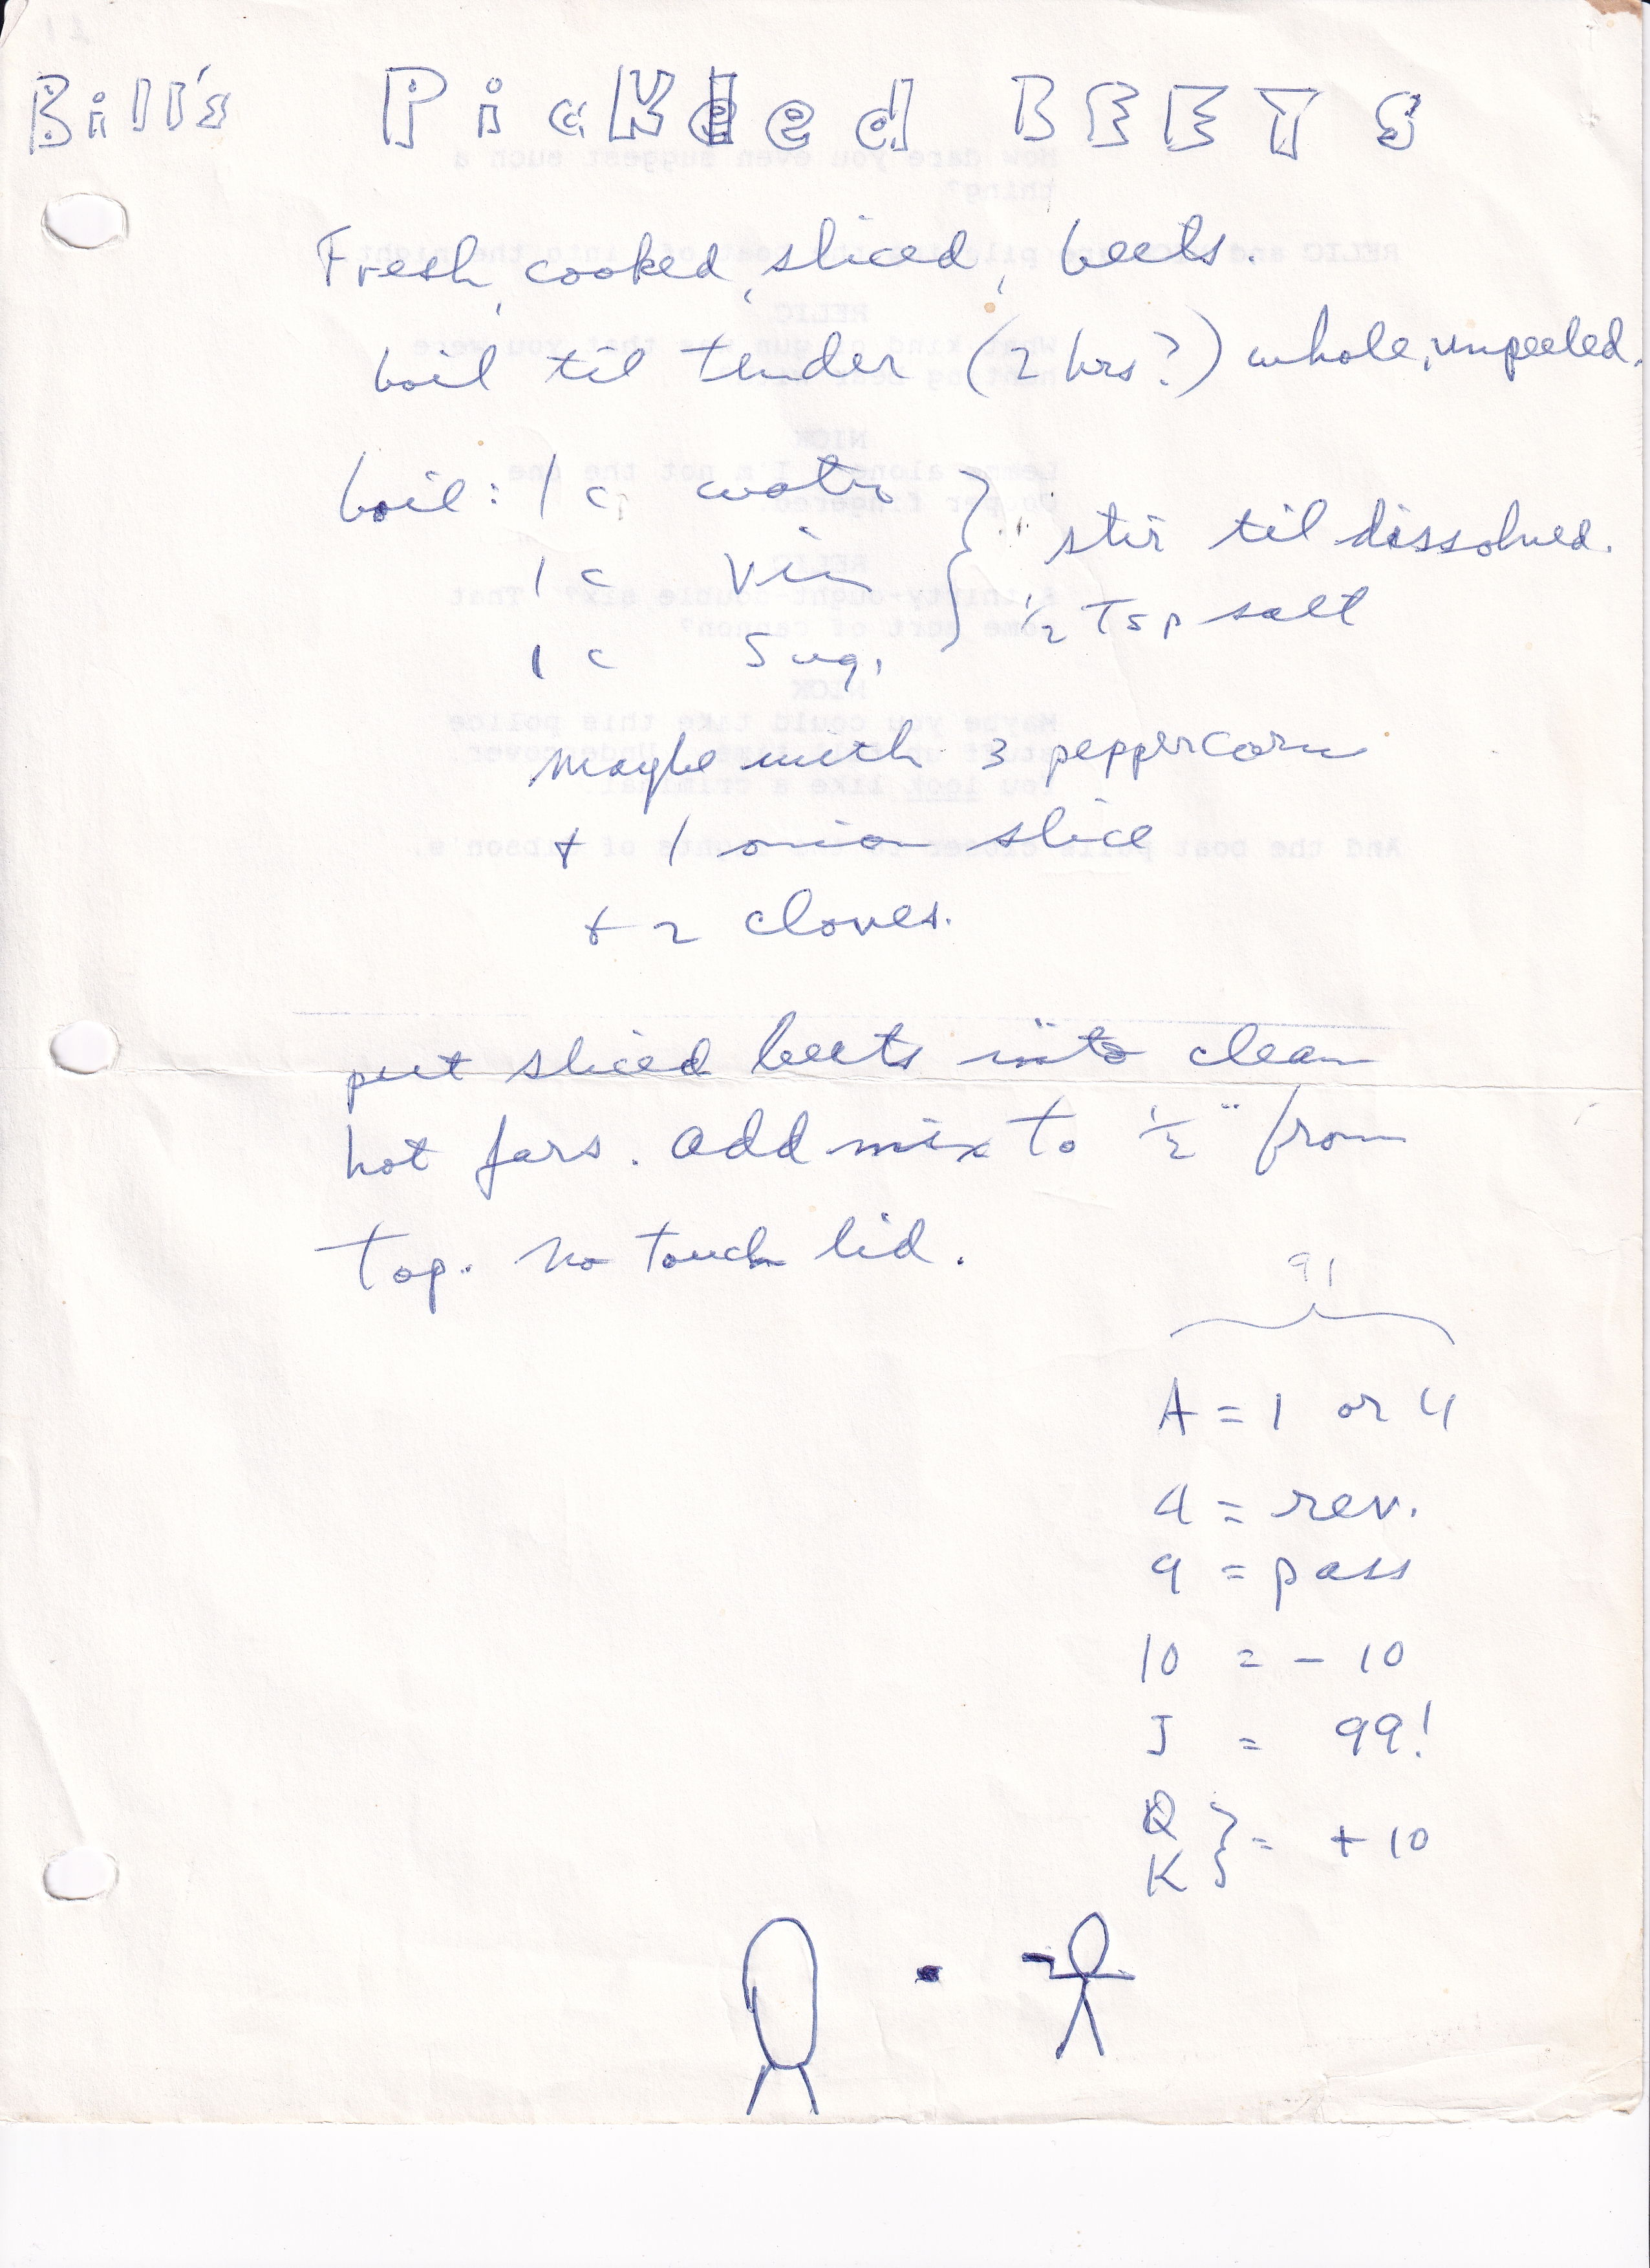 Bill's Pickled BEETS
Fresh, cooked, sliced, beets.
boil til tender (2 hrs?) whole, unpeeled.
boil: 1 c water
1 c Vin
1 c Sug.
} stir til dissolved.
1/2 Tsp salt
maybe with 3 peppercorn
+ 1 onion slice
+ 2 cloves.
put sliced beets into clean
hot jars. add mix to 1/2" from
top. no touch lid.
91
A = 1 or 4
4 = rev.
9 = pass
10 = - 10
J = 99!
Q
K } = + 10